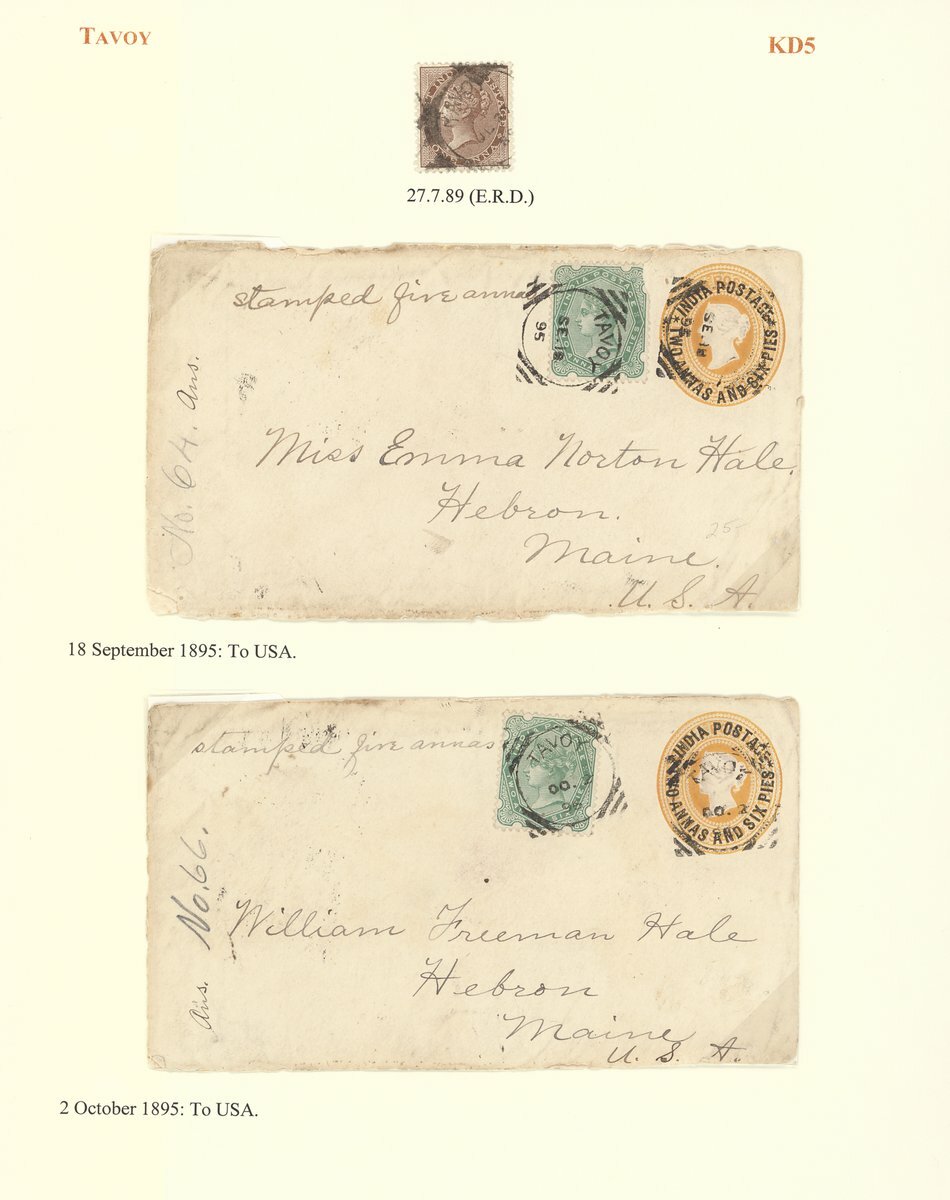 TAVOY
KD5
27.7.89 (E.R.D.)
stamped five annas
TAVOY
SE. 18
95
INDIA POSTAGE
TWO ANNAS AND SIX PIES
SE. 18
95
No. 64. Ans.
Miss Emma Norton Hale.
Hebron.
25-
Maine.
U. S. A.
18 September 1895: To USA.
stamped five annas
TAVOY
OC. 2
95
INDIA POSTAGE
TWO ANNAS AND SIX PIES
TAVOY
OC. 2
Ans. No. 66.
William Freeman Hale
Hebron
Maine
U. S. A.
2 October 1895: To USA.